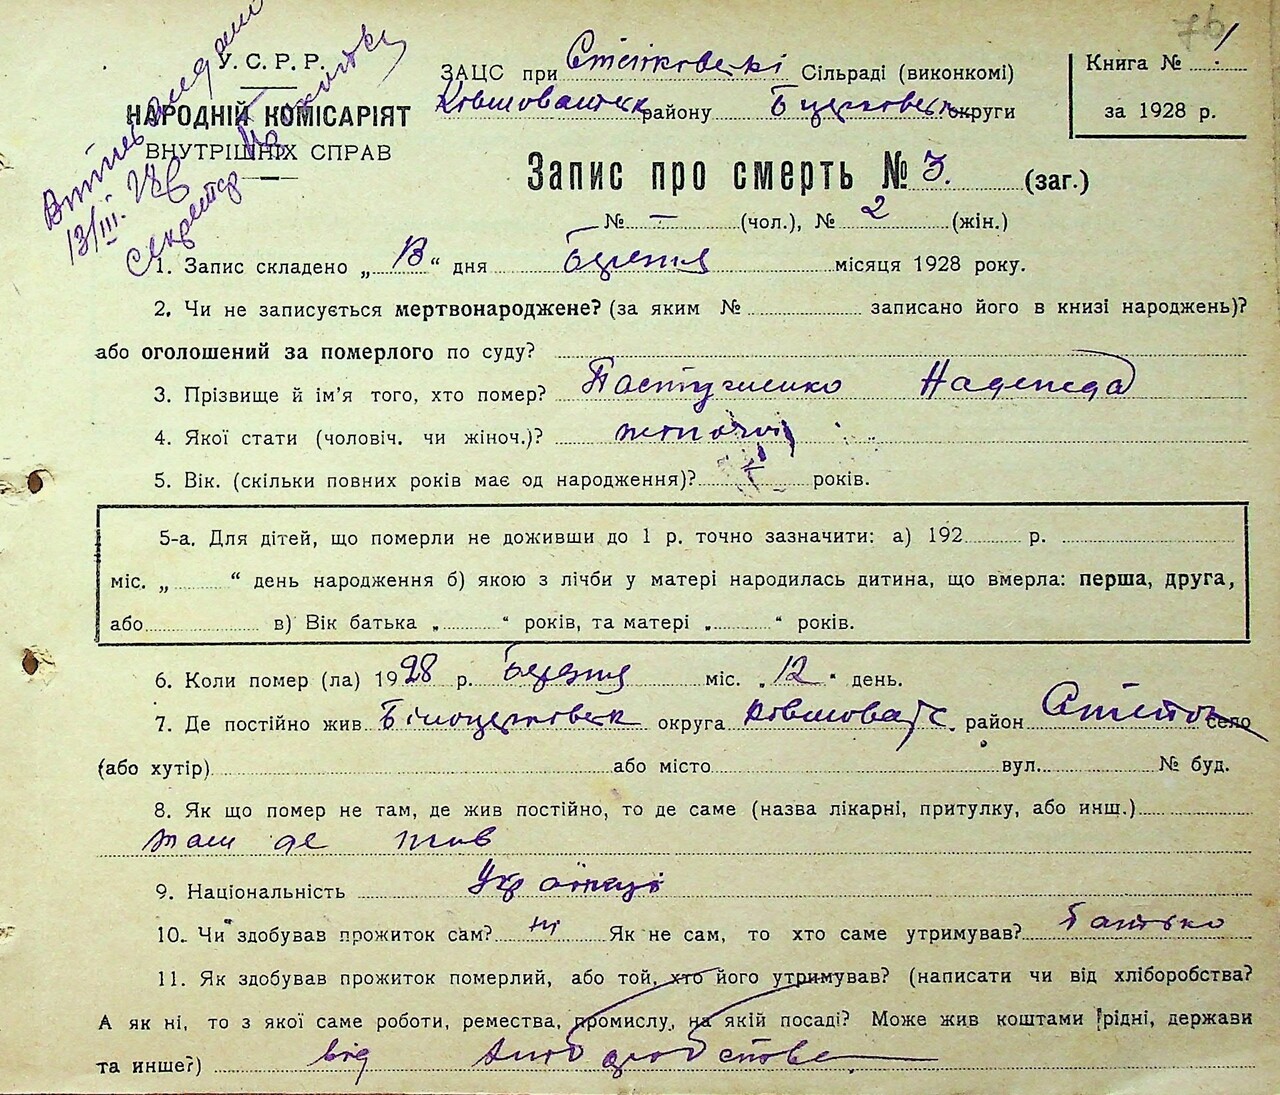 76
1
У. С. Р. Р.
НАРОДНІЙ КОМІСАРІЯТ
ВНУТРІШНІХ СПРАВ
13/III. 28
Секретар
ЗАЦС при Сільраді (виконкомі)
району округи
Книга №
за 1928 р.
Запис про смерть № 3. (заг.)
№ — (чол.), № 2 (жін.)
1. Запис складено „ 13 “ дня Березня місяця 1928 року.
2. Чи не записується мертвонароджене? (за яким № записано його в книзі народжень)?
або оголошений за померлого по суду?
3. Прізвище й ім'я того, хто помер? Надежда
4. Якої стати (чоловіч. чи жіноч.)? жіночої
5. Вік. (скільки повних років має од народження)? років.
5-а. Для дітей, що померли не доживши до 1 р. точно зазначити: а) 192 р.
міс. „ “ день народження б) якою з лічби у матері народилась дитина, що вмерла: перша, друга,
або в) Вік батька „ “ років, та матері „ “ років.
6. Коли помер (ла) 1928 р. Березня міс. „ 12 “ день.
7. Де постійно жив Білоцерковськ округа район село
(або хутір) або місто вул. № буд.
8. Як що помер не там, де жив постійно, то де саме (назва лікарні, притулку, або инш.)
там де жив
9. Національність Україці
10. Чи здобував прожиток сам? ні Як не сам, то хто саме утримував? батько
11. Як здобував прожиток померлий, або той, хто його утримував? (написати чи від хліборобства?
А як ні, то з якої саме роботи, ремества, промислу, на якій посаді? Може жив коштами рідні, держави
та инше?) від хліборобства